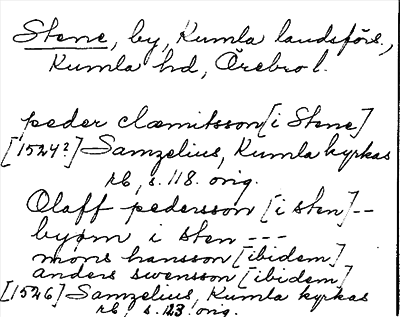 Stene, by, Kumla landsförs.,
Kumla hd, Örebro l.
peder clæmitsson [i Stene]
[1524?] Samzelius, Kumla kyrkas
rb, s. 118. orig.
Olaff pedersson [i sten] --
byøm i sten ---
mons hansson [ibidem]
anders swensson [ibidem]
[1526] Samzelius, Kumla kyrkas
rb, s. 123. orig.